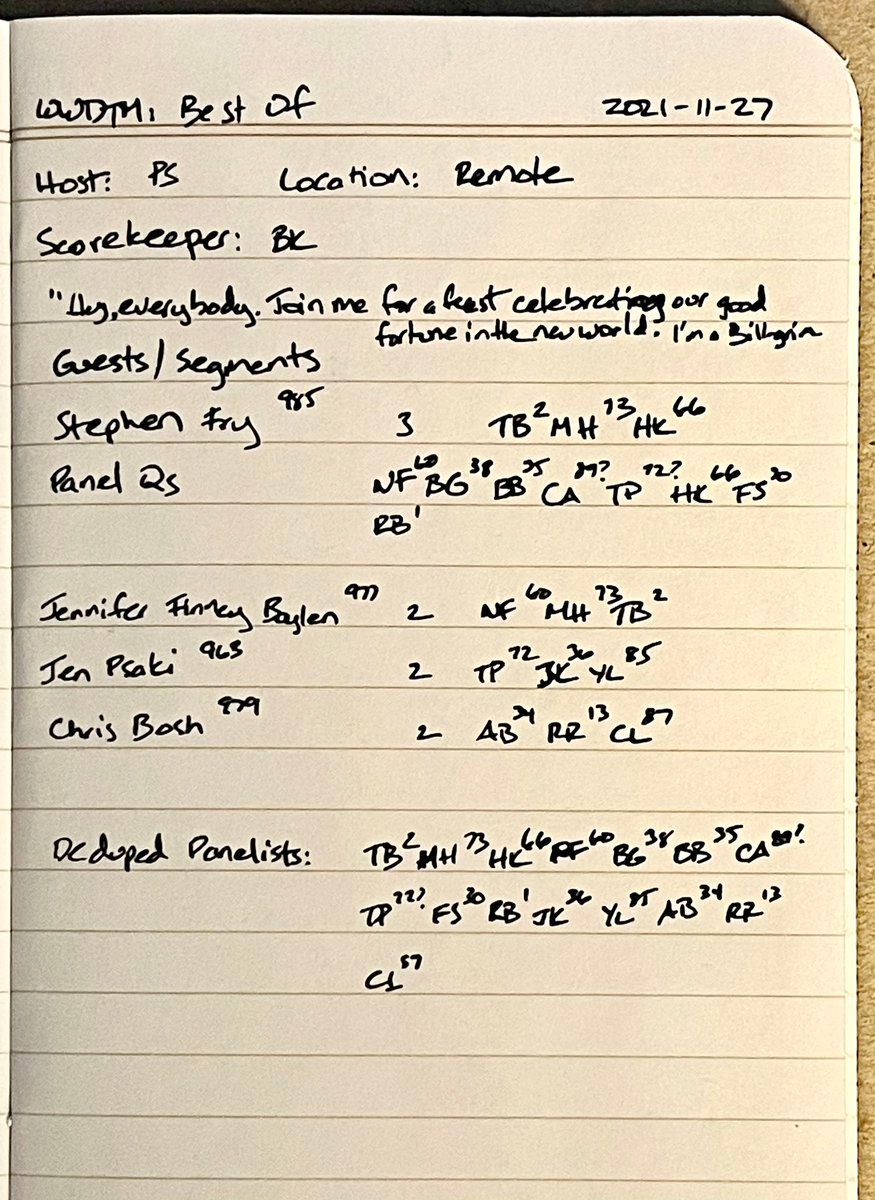 WWDTM: Best Of 2021-11-27
Host: PS Location: Remote
Scorekeeper: BK
"Hey, everybody. Join me for a feast celebrating our good
fortune in the new world. I'm a Billgrim
Guests/Segments
Stephen Fry 985 3 TB2 MH73 HK66
Panel Qs NF60 BG38 BB35 CA89? TP72? HK66 FS30
RB1
Jennifer Finney Boylen 977 2 NF60 MH73 TB2
Jen Psaki 963 2 TP72 JK36 YL85
Chris Bosh 979 2 AB34 RR13 CL87
Deduped Panelists: TB2 MH73 HK66 NF60 BG38 BB35 CA89?
TP72? FS30 RB1 JK36 YL85 AB34 RR13
CL87